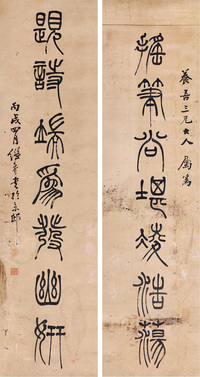 養吾三兄大人屬篆
搖筆尚堪凌浩蕩
題詩端爲發幽妍
丙戌四月書於京邸